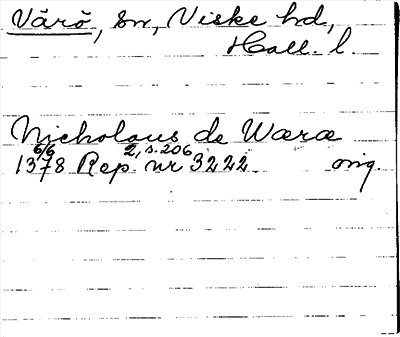 Värö, sn, Viske hd,
Hall. l.
Nicholaus de Wæræ
6/6 2, s. 206
1378 Rep. nr 3222 orig.